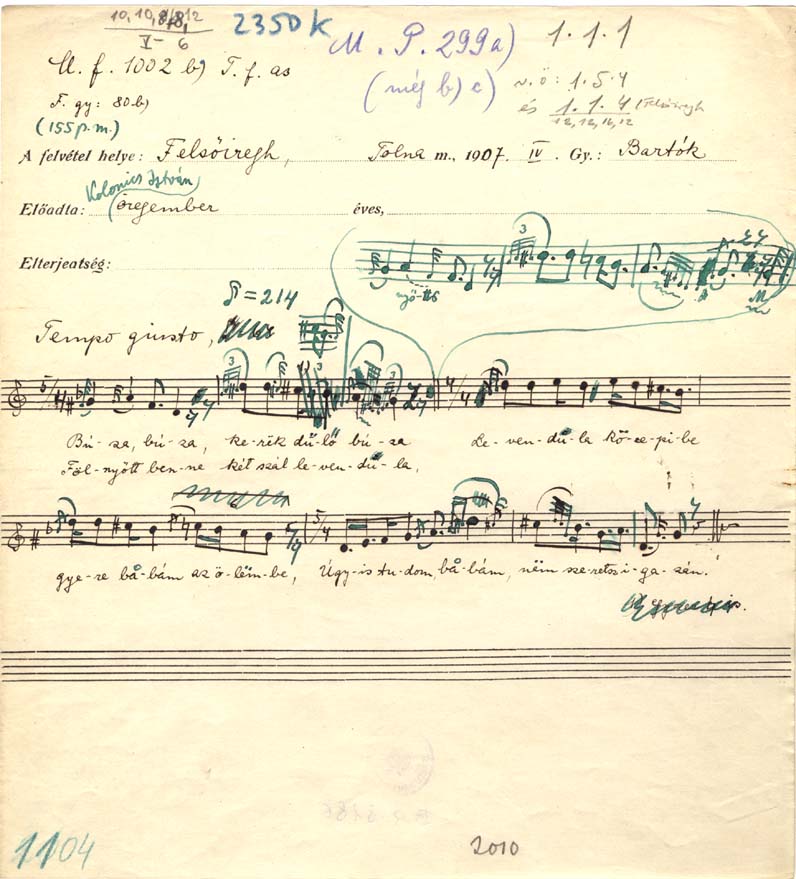 10, 10, 8/8, 12
V – 6
2350 K
M. P. 299a)
1. 1. 1
M. f. 1002 b) T. f. as
(még b) c)
v. ö: 1. 5. 4
F. gy: 80 b)
és 1. 1. 4 (Felsőiregh
12, 12, 12, 12
(155 p.m.)
A felvétel helye: Felsőiregh, Tolna m., 1907. IV. Gy.: Bartók
Kolonics István
Előadta: öregember éves,
Elterjeatség:
3
nyő-tt
♪ = 214
Tempo giusto,
3 3 3
5/4
Bú-za, bú-za, ke-rëk dűlő bú-za Le-ven-du-la kö-ze-pi-be
Föl-nyőtt ben-ne két szál le-ven-du-la,
5/4
gye-re bå-bám az ö-lëm-be, Úgy-is tu-dom, bå-bám, nëm sze-retsz i-ga-zán.
1104
2010